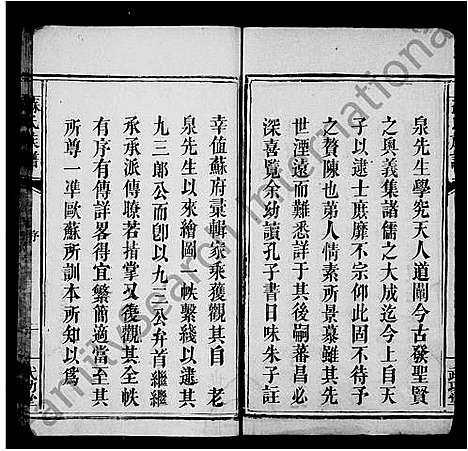 泉先生學究天人道闡今古發聖賢
之奧義集諸儒之大成迄今上自天
子以逮士庶靡不宗仰此不待予
之贅陳也第人情素所景慕雖其先
世湮遠而難悉詳于其後嗣蕃昌必
深喜覽余幼讀孔子書日味朱子註
幸值蘇府彙輯家乘獲觀其自 老
泉先生以來繪圖一帙繫綫以遞其
九三郎公而卽以九三公弁首繼繼
承承派傳瞭若指掌又復觀其全帙
有序有傳詳畧得宜繁簡適當至其
所尊一準歐蘇所訓本所知以爲
蘇氏族譜
序
武功堂